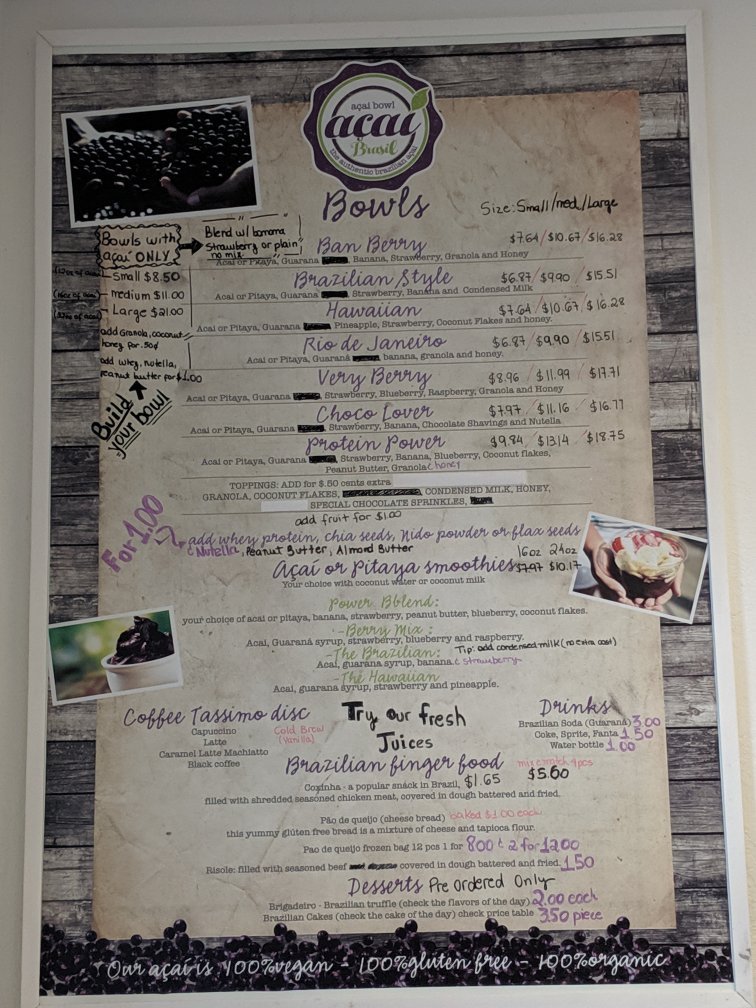 açaí bowl
açaí
Brasil
the authentic brazilian açaí
Bowls
Size: Small/med/Large
Bowls with
açaí ONLY
Blend w/ banana
Strawberry or plain
no mix
Small $8.50
medium $11.00
Large $21.00
add Granola, coconut
honey for .50¢
add whey, nutella,
peanut butter for $1.00
Build
your bowl
Ban Berry $7.64/$10.67/$16.28
Acai or Pitaya, Guarana Banana, Strawberry, Granola and Honey
Brazilian Style $6.87/$9.90/$15.51
Acai or Pitaya, Guarana Strawberry, Banana and Condensed Milk
Hawaiian $7.64/$10.67/$16.28
Acai or Pitaya, Guarana Pineapple, Strawberry, Coconut Flakes and honey.
Rio de Janeiro $6.87/$9.90/$15.51
Acai or Pitaya, Guaraná banana, granola and honey.
Very Berry $8.96/$11.99/$17.71
Acai or Pitaya, Guarana, Strawberry, Blueberry, Raspberry, Granola and Honey
Choco Lover $7.97/$11.16/$16.77
Acai or Pitaya, Guarana, Strawberry, Banana, Chocolate Shavings and Nutella
Protein Power $9.84/$13.14/$18.75
Acai or Pitaya, Guarana Strawberry, Banana, Blueberry, Coconut flakes,
Peanut Butter, Granola & honey
TOPPINGS: ADD for $.50 cents extra
GRANOLA, COCONUT FLAKES, CONDENSED MILK, HONEY,
SPECIAL CHOCOLATE SPRINKLES,
add fruit for $1.00
For 1.00
add whey protein, chia seeds, Nido powder or flax seeds
& Nutella, Peanut Butter, Almond Butter
Açaí or Pitaya smoothies 16oz 24oz
$7.97 $10.17
Your choice with coconut water or coconut milk
Power Bblend:
your choice of acai or pitaya, banana, strawberry, peanut butter, blueberry, coconut flakes.
-Berry Mix :
Acai, Guaraná syrup, strawberry, blueberry and raspberry.
-The Brazilian: Tip: add condensed milk (no extra cost)
Acai, guarana syrup, banana & strawberry
-The Hawaiian
Acai, guarana syrup, strawberry and pineapple.
Coffee Tassimo disc
Capuccino
Latte
Caramel Latte Machiatto
Black coffee
Cold Brew
(Vanilla)
Try our fresh
Juices
Drinks
Brazilian Soda (Guaraná) 3.00
Coke, Sprite, Fanta 1.50
Water bottle 1.00
Brazilian finger food mix & match 4pcs
$5.60
Coxinha - a popular snack in Brazil, $1.65
filled with shredded seasoned chicken meat, covered in dough battered and fried.
Pão de queijo (cheese bread) baked $1.00 each
this yummy glúten free bread is a mixture of cheese and tapioca flour.
Pao de queijo frozen bag 12 pcs 1 for 8.00 & 2 for 12.00
Risole: filled with seasoned beef covered in dough battered and fried. 1.50
Desserts Pre Ordered Only
Brigadeiro - Brazilian truffle (check the flavors of the day) 2.00 each
Brazilian Cakes (check the cake of the day) check price table 3.50 piece
Our açaí is 100%vegan - 100%gluten free - 100%organic